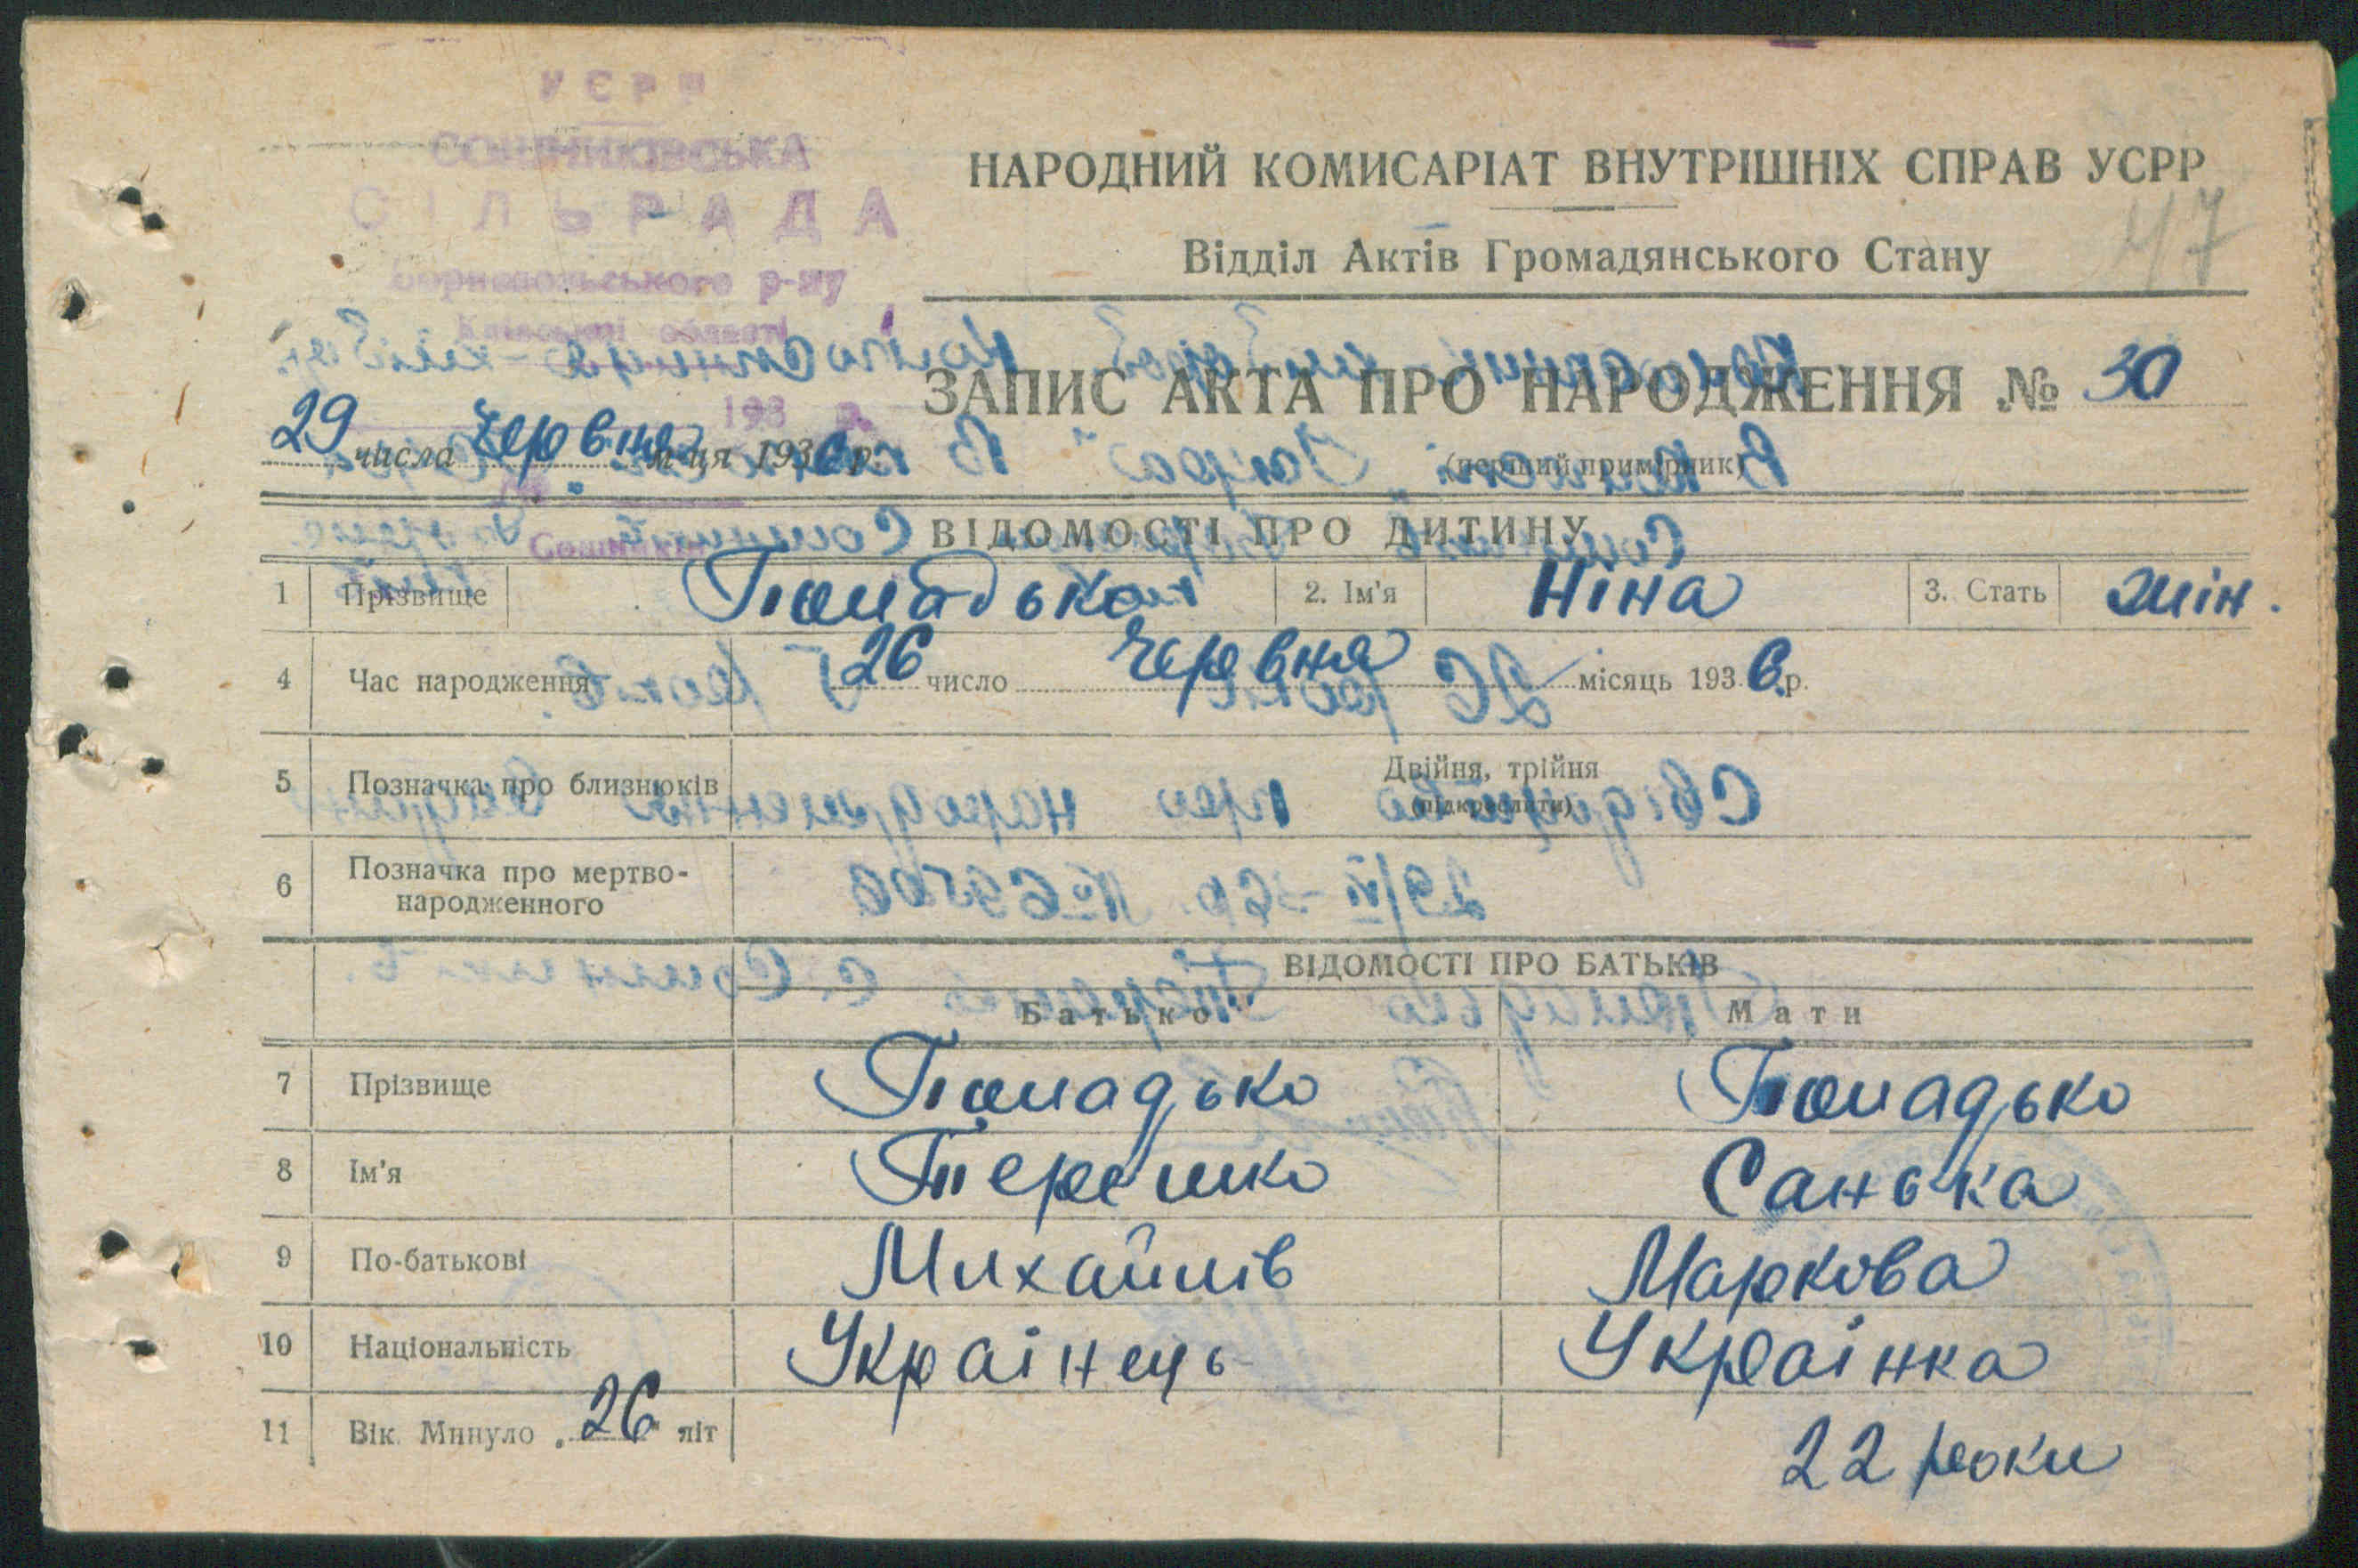 УСРР
СОШНИКІВСЬКА
СІЛЬРАДА
Бориспольського р-ну
Київської області
193 р.
НАРОДНИЙ КОМИСАРІАТ ВНУТРІШНІХ СПРАВ УСРР
47
Відділ Актів Громадянського Стану
ЗАПИС АКТА ПРО НАРОДЖЕННЯ № 30
29 числа червня м-ця 1936 р.
(перший примірник)
ВІДОМОСТІ ПРО ДИТИНУ
1 Прізвище Помадько 2. Ім'я Ніна 3. Стать жін.
4 Час народження 26 число червня місяць 1936 р.
5 Позначка про близнюків Двійня, трійня
(підкреслити)
6 Позначка про мертво-
народженного
ВІДОМОСТІ ПРО БАТЬКІВ
Батько Мати
7 Прізвище Помадько Помадько
8 Ім'я Терешко Санька
9 По-батькові Михайлів Маркова
10 Національність Украінець Украінка
11 Вік. Минуло „26“ літ 22 роки